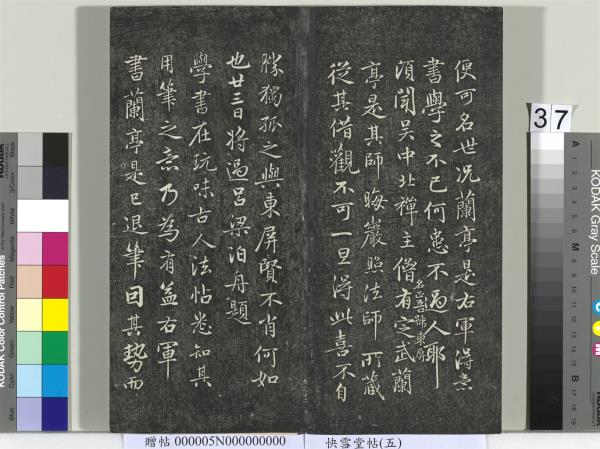 便可名世況蘭亭是右軍得意
書學之不已何患不過人耶
頃聞吳中北禪主僧有定武蘭
名正吾號東屏
亭是其師晦巖照法師所藏
從其借觀不可一旦得此喜不自
勝獨孤之與東屏賢不肖何如
也廿三日將過呂梁泊舟題
學書在玩味古人法帖悉知其
用筆之意乃為有益右軍
書蘭亭是已退筆因其勢而
37
KODAK Gray Scale
A 1 2 3 4 5 6 M 8 9 10 11 12 13 14 15 B 17 18 19
KODAK Color Control Patches
Blue Cyan Green Yellow Red Magenta White 3/Color Black
贈帖 000005N000000000 快雪堂帖(五)